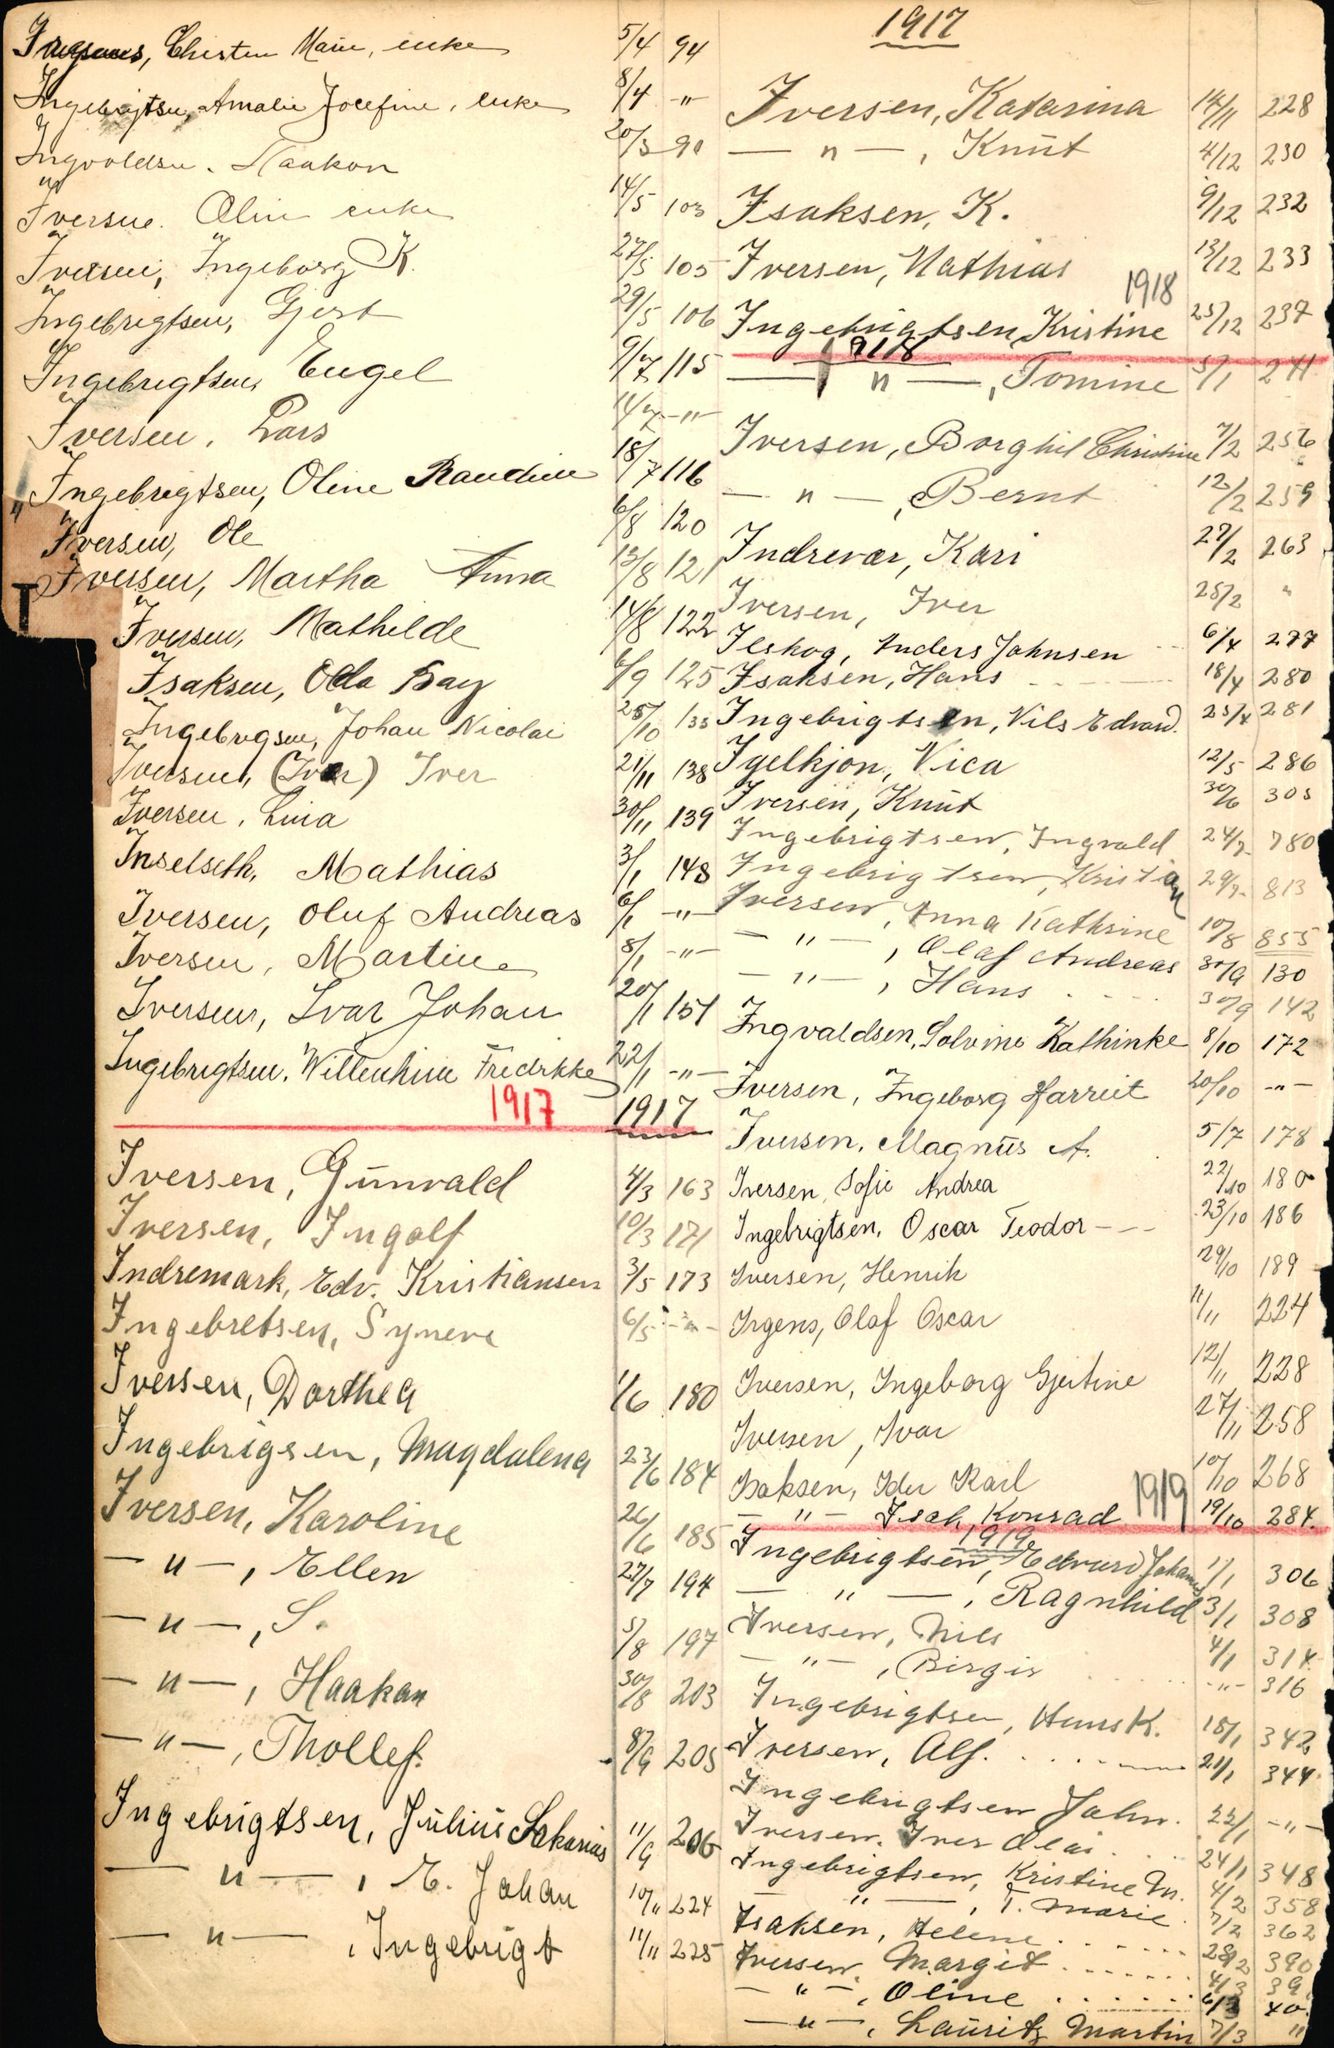 Christen Marie, enke 5/4 94
Ingebrigtsen, Amalie Josefine, enke 8/4 -"-
Ingvoldsen. Haakon 20/3 90
Iversen. Olin enke 14/5 103
Iversen, Ingeborg K. 27/5 105
Ingebrigtsen, Gjert 29/5 106
Ingebrigtsen, Engel 9/7 115
Iversen, Lars 11/7 -"-
Ingebrigtsen, Oline Raudine 18/7 116
Iversen, Ole 6/8 120
Iversen, Martha Anna 13/8 121
Iversen, Mathilde 14/8 122
Isaksen, Oda Day 6/9 125
Ingebrigsen, Johan Nicolai 25/10 133
Iversen, (Ivar) Iver 21/11 138
Iversen, Lina 30/11 139
Inselseth, Mathias 3/1 148
Iversen, Oluf Andreas 6/1 -"-
Iversen, Martine 8/1 -"-
Iversen, Ivar Johan 20/1 151
Ingebrigtsen, Willemhine Fredrikke 22/1 -"-
1917 1917
Iversen, Gunvald 4/3 163
Iversen, Ingolf 10/3 171
Indremark, Edv. Kristiansen 3/5 173
Ingebretsen, Syneve 6/5 -"-
Iversen, Dorthea 1/6 180
Ingebrigsen, Magdalena 23/6 184
Iversen, Karoline 26/6 185
-"-, Ellen 27/7 194
-"-, S. 5/8 197
-"-, Haakan 30/8 203
-"-, Thollef. 8/9 205
Ingebrigtsen, Julius Sakarias 11/9 206
-"-, E. Johan 10/11 224
-"-, Ingebrigt 11/11 225
1917
Iversen, Katarina 14/11 228
-"-, Knut 4/12 230
Isaksen, K. 9/12 232
Iversen, Mathias 13/12 233
1918
Ingebrigtsen, Kristine 25/12 237
1918
-"-, Tomine 5/1 241
Iversen, Borghil Christine 7/2 256
-"-, Bernt 12/2 259
Indrevær, Kari 27/2 263
Iversen, Iver 25/2 "
Ilskog, Anders Johnsen 6/4 277
Isaksen, Hans 18/4 280
Ingebrigtsen, Nils Edvard. 25/4 281
Igelkjøn, Vica 12/5 286
Iversen, Knut 30/6 305
Ingebrigtsen, Ingvald 24/7 780
Ingebrigtsen, Kristian 29/7 813
Iversen, Anna Kathrine 10/8 855
-"-, Olaf Andreas 30/9 130
-"-, Hans 30/9 142
Ingvaldsen, Solvine Kathinke 8/10 172
Iversen, Ingeborg Harriet 20/10 -"-
Iversen, Magnus A. 5/7 178
Iversen, Sofie Andrea 22/10 180
Ingebrigtsen, Oscar Teodor 23/10 186
Iversen, Henrik 29/10 189
Irgens, Olaf Oscar 11/11 224
Iversen, Ingeborg Gjertine 12/11 228
Iversen, Ivar 27/11 258
Isaksen, Karl 10/10 268
1919
-"- Konrad 19/10 284.
1919
Ingebrigtsen, Edvard Johannes 1/1 306
-"-, Ragnhild 3/1 308
Iversen, Nils 4/1 314
-"-, Birgir -"- 316
Ingebrigtsen, Hans K. 18/1 342
Iversen, Alf. 21/1 344
Ingebrigtsen John. 22/1 -"-
Iversen, Iver Olai 24/1 348
Ingebrigtsen, Kristine M. 4/2 358
-"-, T. Marie. 7/2 362
Isaksen, Helene 28/2 390
Iversen, Margit 4/3 39
-"-, Oline 6/3 40.
-"-, Lauritz Martin 7/3 "